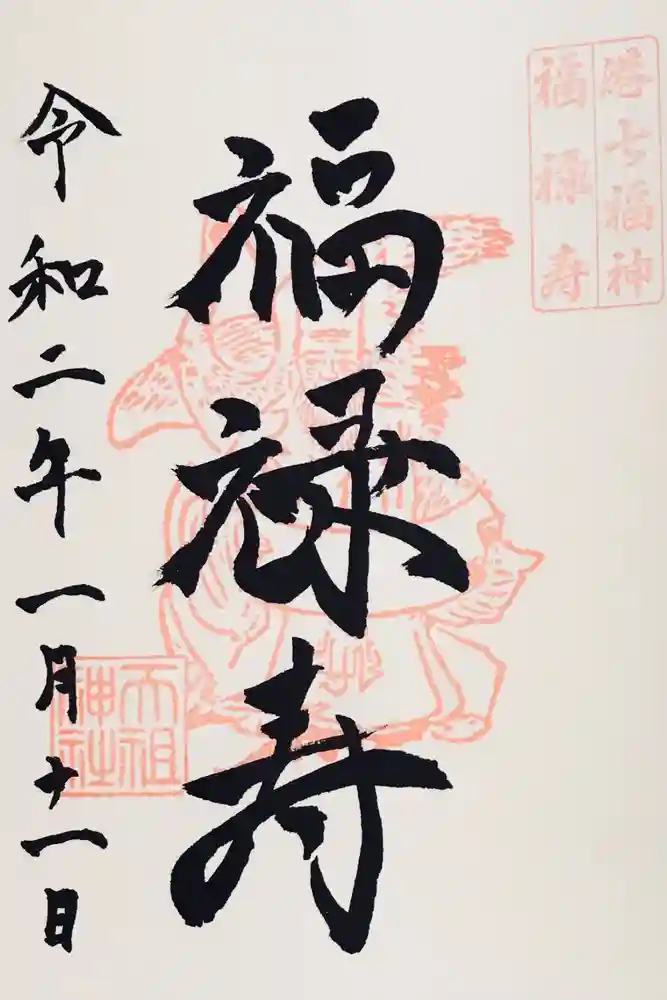 港七福神
福禄寿
福禄寿
令和二年一月十一日
天祖
神社